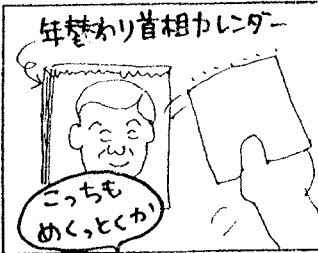 年替わり首相カレンダー
こっちも
めくっとくか